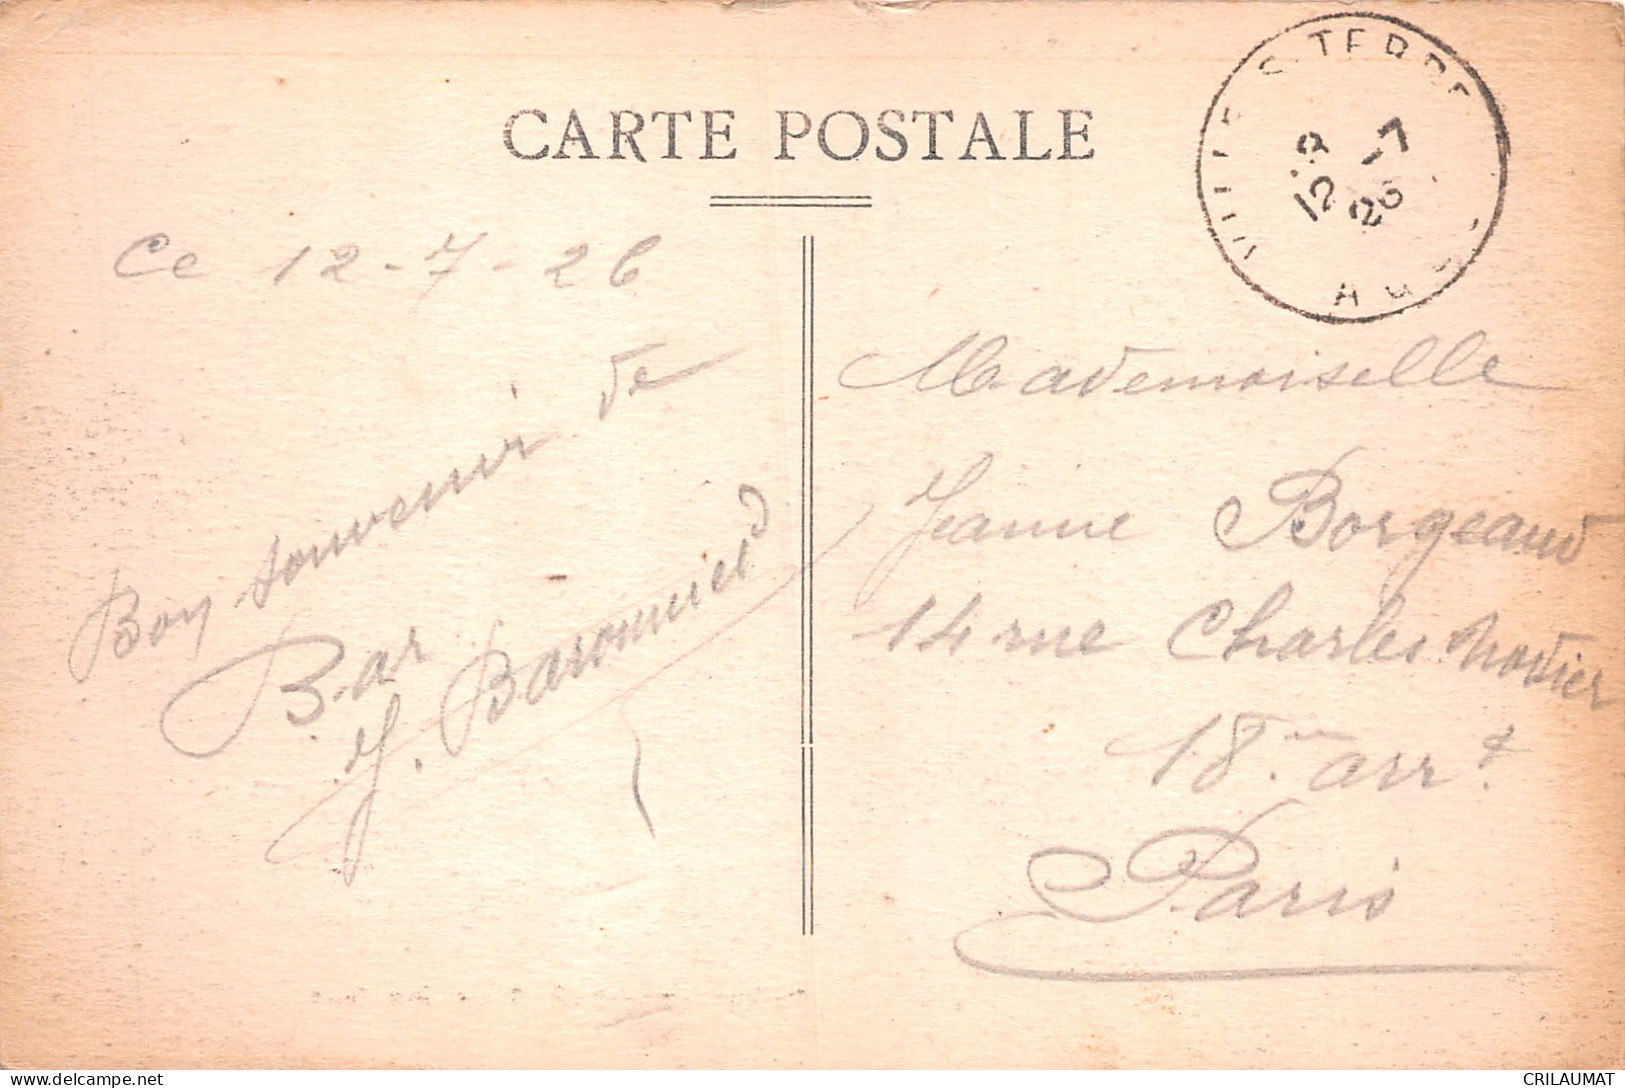 CARTE POSTALE
VILLE S. TERRE
12
-7
26
Ce 12-7-26
Bon souvenir de
Bar
J. Baronnied
Mademoiselle
Jeanne Borgeaud
14 rue Charles Nodier
18me arrt.
Paris
CRILAUMAT